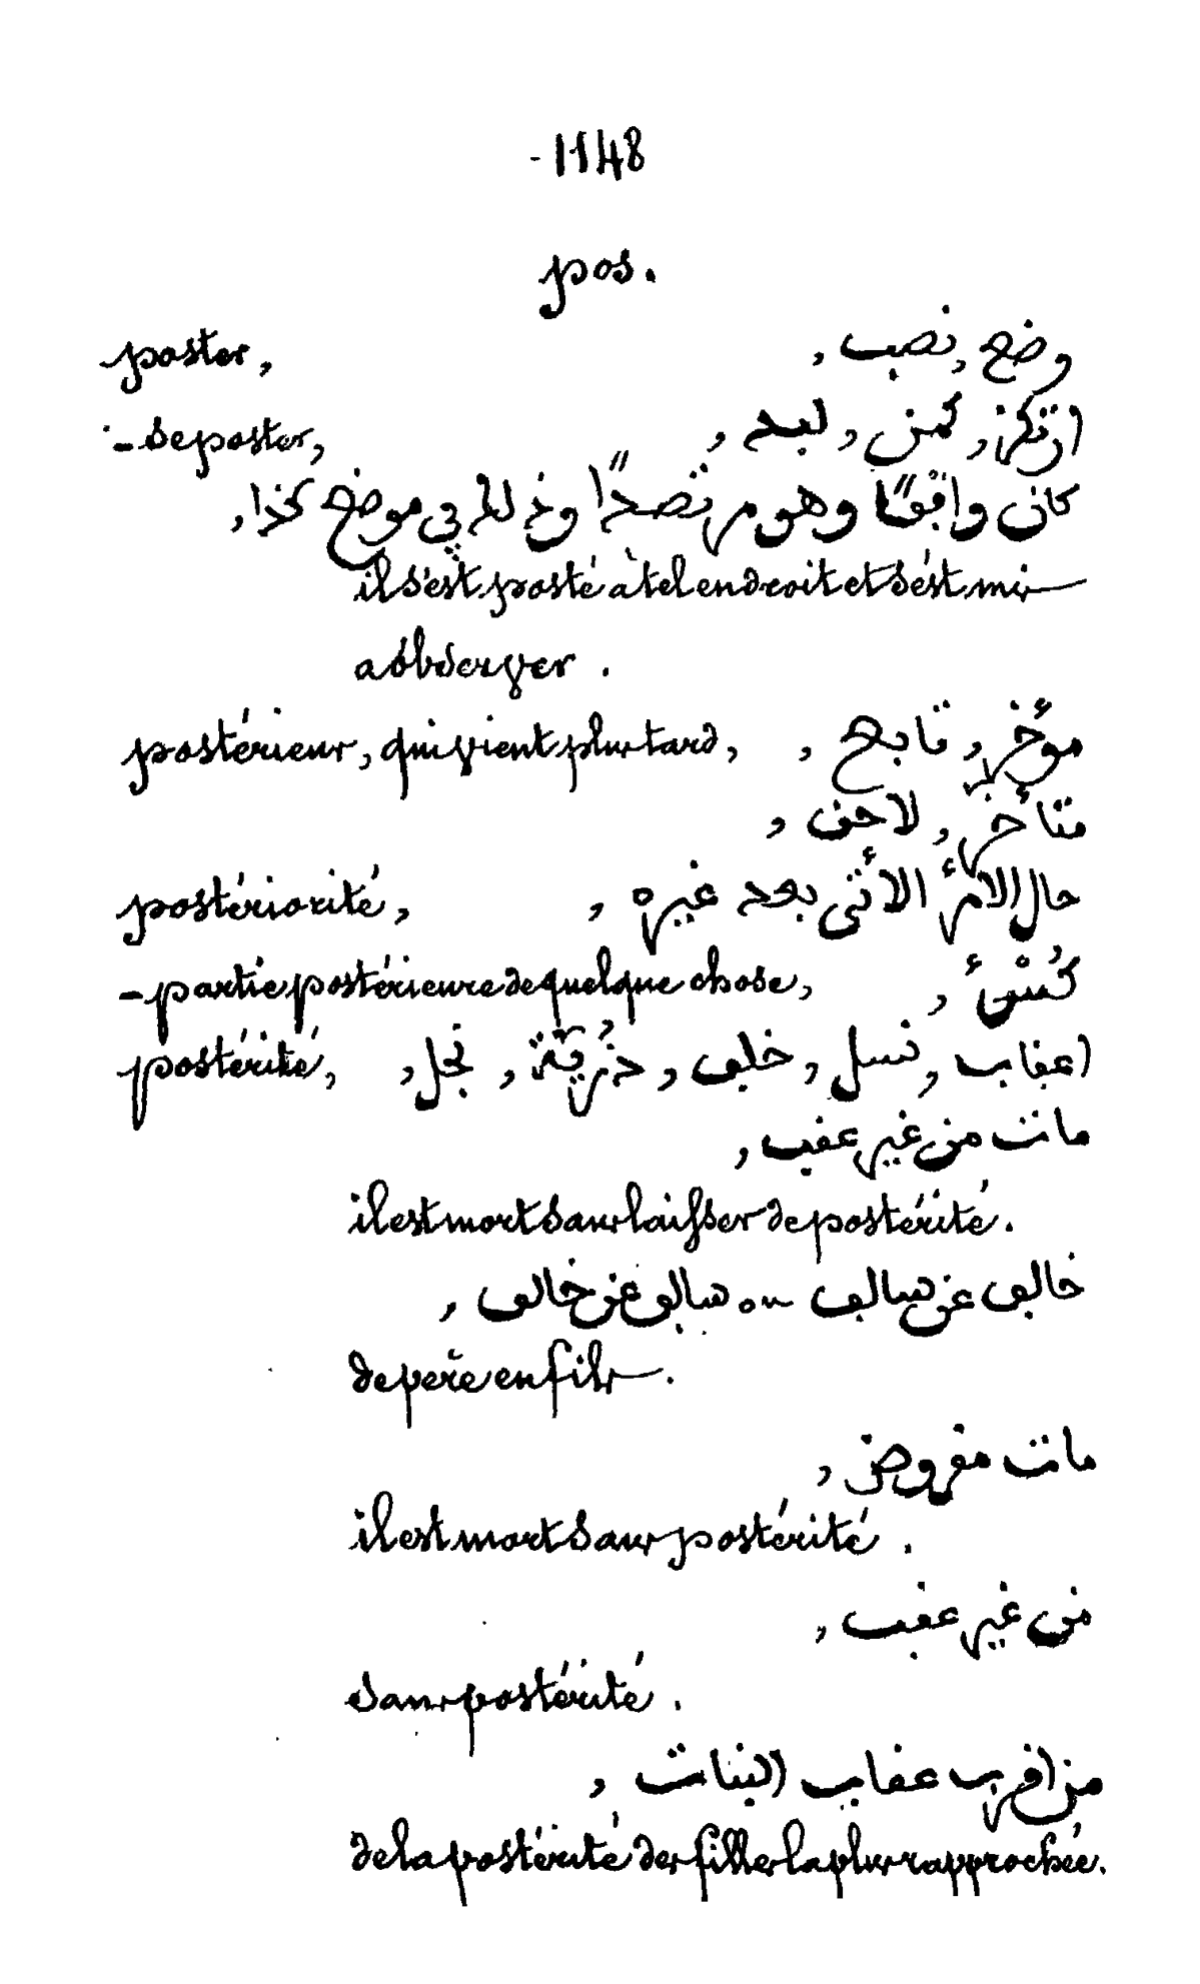 - 1148
pos.
poster, وضع, نصب,
- se poster, ارتكز, كمن, لبد,
كان واقفًا وهو مرتصدًا وذلك في موضع كذا,
il s'est posté à tel endroit et s'est mis
a observer.
postérieur, qui vient plus tard, مؤخر, تابع,
متأخر, لاحق,
postériorité, حال الامر الأتى بعد غيره,
- partie postérieure de quelque chose, كُسْئ,
postérité, اعقاب, نسل, خلف, ذُرِّيَّة, نجل,
مات من غير عقب,
il est mort sans laisser de postérité.
خالف عن سالف ou سالف عن خالف,
de père en fils.
مات مقروض,
il est mort sans postérité.
من غير عقب,
sans postérité.
من اقرب عقاب البنات,
de la postérité des filles la plus rapprochée.